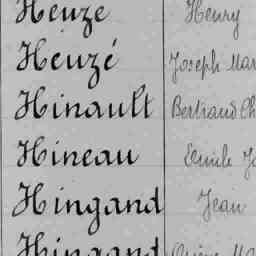 Heuzé Henry
Heuzé Joseph Mar
Hinault Bertrand Ch
Hineau Emile Jo
Hingand Jean
Hingand